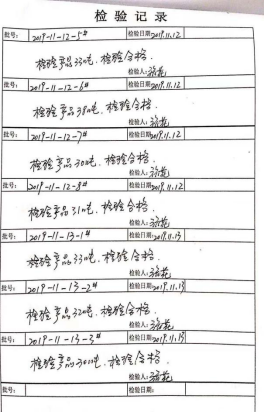 检验记录
批号: 2019-11-12-5# 检验日期: 2019.11.12
检验产品330吨，检验合格.
检验人:
批号: 2019-11-12-6# 检验日期: 2019.11.12
检验产品380吨，检验合格.
检验人:
批号: 2019-11-12-7# 检验日期: 2019.11.12
检验产品300吨，检验合格.
检验人:
批号: 2019-11-12-8# 检验日期: 2019.11.12
检验产品310吨，检验合格.
检验人:
批号: 2019-11-13-1# 检验日期: 2019.11.13
检验产品330吨，检验合格.
检验人:
批号: 2019-11-13-2# 检验日期: 2019.11.13
检验产品320吨，检验合格.
检验人:
批号: 2019-11-13-3# 检验日期: 2019.11.13
检验产品300吨，检验合格.
检验人:
批号: 检验日期: